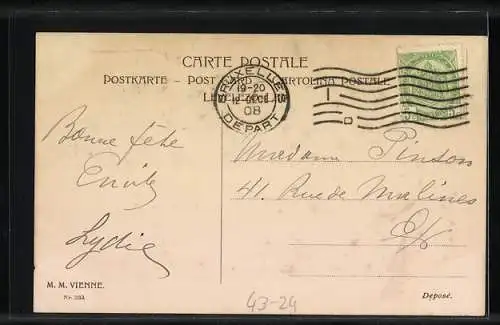 CARTE POSTALE
POSTKARTE – POST CARD – CARTOLINA POSTALE
BRUXELLES
19-20
12 DEC
08
DÉPART
Bonne fête
Lydie
Madame Pinson
41 Rue de Malines
E/V
M. M. VIENNE.
Nr.
Déposé.
43-24